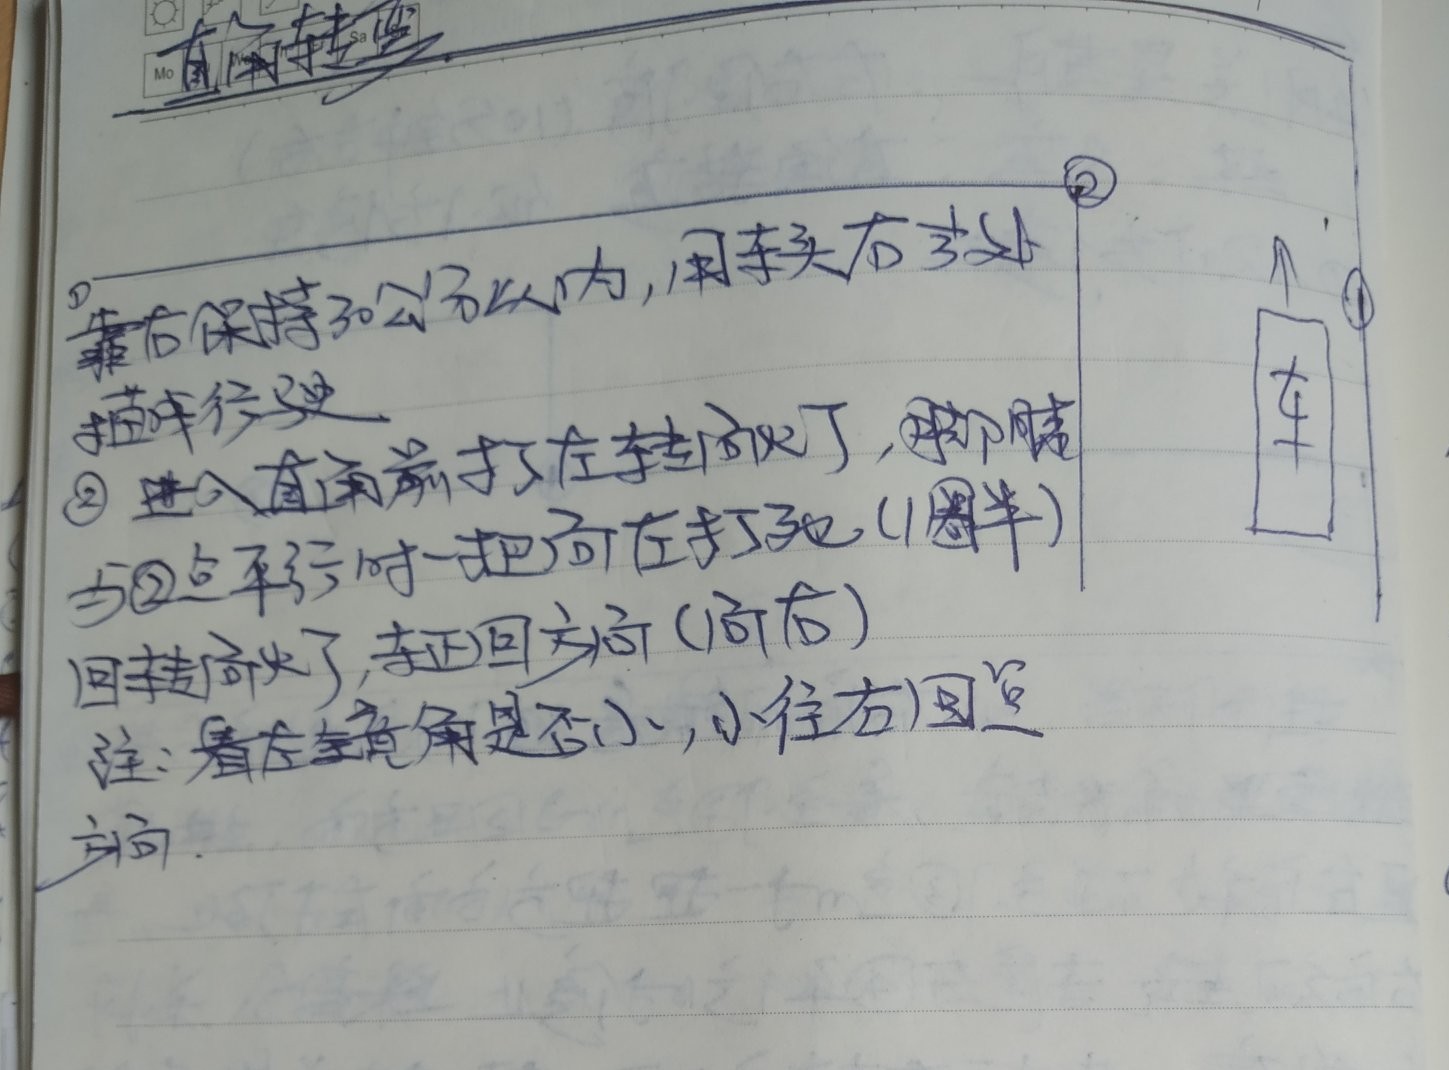 直角转弯
Mo
Sa
②
①靠右保持30公分以内,用车头右1/3处
描线行驶
②进入直角前打左转向灯,用眼睛
与②点平行时一把向左打死(1圈半)
回转向灯,车正回方向(向右)
注:看左后镜角是否小,小往右回点
方向.
①
车